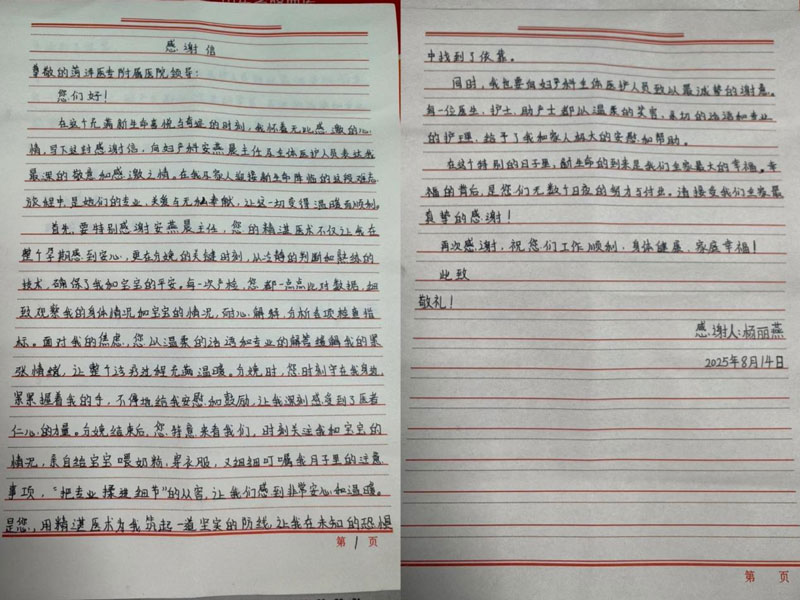 感谢信
尊敬的菏泽医专附属医院领导:
您们好!
在这个充满新生命喜悦与奇迹的时刻,我怀着无比感激的心
情,写下这封感谢信,向妇产科安燕晨主任及全体医护人员表达我
最深的敬意和感激之情。在我及家人迎接新生命降临的这段难忘
旅程中,是她们的专业、关爱与无私奉献,让这一切变得温暖而顺利。
首先,要特别感谢安燕晨主任,您的精湛医术不仅让我在
整个孕期感到安心,更在分娩的关键时刻,以冷静的判断和熟练的
技术,确保了我和宝宝的平安。每一次产检,您都一点点比对数据,细
致观察我的身体情况和宝宝的情况,耐心解释,分析各项检查指
标。面对我的焦虑,您以温柔的话语和专业的解答缓解我的紧
张情绪,让整个诊疗过程充满温暖。分娩时,您时刻守在我身边,
紧紧握着我的手,不停地给我安慰和鼓励,让我深刻感受到了医者
仁心的力量。分娩结束后,您特意来看我们,时刻关注我和宝宝的
情况,亲自给宝宝喂奶粉,穿衣服,又细细叮嘱我月子里的注意
事项,“把专业揉进细节”的从容,让我们感到非常安心和温暖。
是您,用精湛医术为我筑起一道坚实的防线,让我在未知的恐惧
第 1 页
中找到了依靠。
同时,我也要向妇产科全体医护人员致以最诚挚的谢意。
每一位医生、护士、助产士都以温柔的笑容、亲切的话语和专业
的护理,给予了我和家人极大的安慰和帮助。
在这个特别的日子里,新生命的到来是我们全家最大的幸福。幸
福的背后,是您们无数个日夜的努力与付出。请接受我们全家最
真挚的感谢!
再次感谢,祝您们工作顺利,身体健康,家庭幸福!
此致
敬礼!
感谢人:杨丽燕
2025年8月14日
第 页